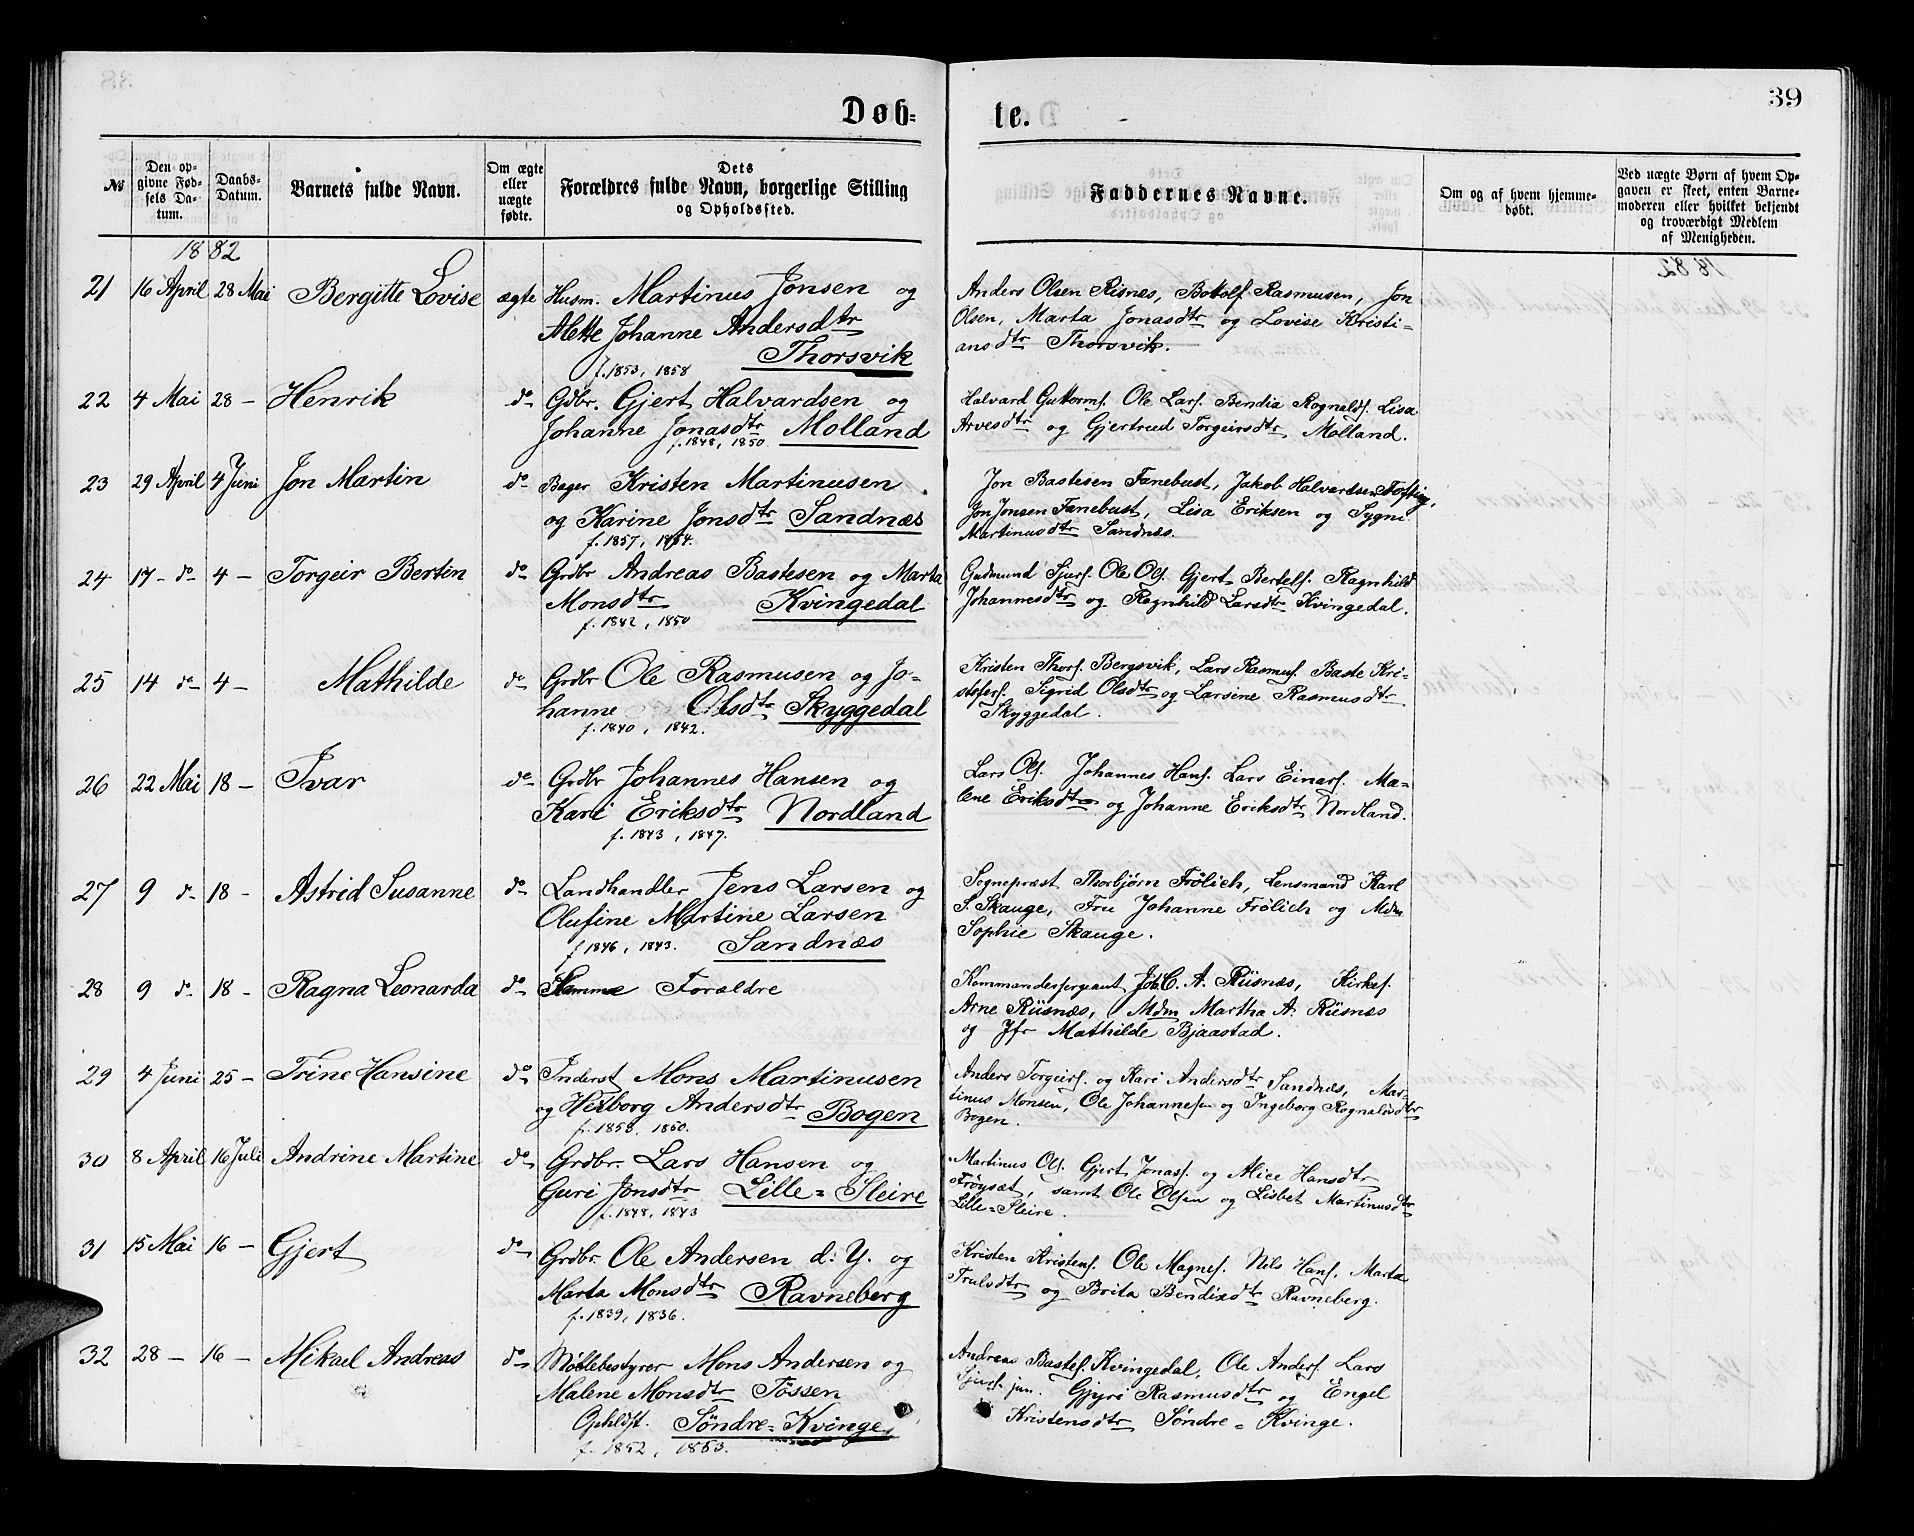 39
Døb=
te.
№
Den op-
givne Fød-
sels Da-
tum.
Daabs-
Datum.
Barnets fulde Navn.
Om ægte
eller
uægte
fødte.
Dets
Forældres fulde Navn, borgerlige Stilling
og Opholdssted.
Faddernes Navne.
Om og af hvem hjemme-
døbt.
Ved uægte Børn af hvem Op-
gaven er skeet, enten Barne-
moderen eller hvilket bekjendt
og troværdigt Medlem
af Menigheden.
1882
21 16 April 28 Mai Bergitte Lovise ægte Husm. Martinus Jonsen og
Mette Johanne Andersdtr
Thorsvik
f. 1853, 1858
Anders Olsen Risnes, Bottolf Rasmusen, Jon
Olsen, Marta Jonasdtr og Lovise Kristi=
ansdtr Thorsvik.
22 4 Mai 28 – Henrik do Gdbr. Gjert Halvardsen og
Johanne Jonasdtr Molland
f. 1848, 1850
Halvard Guttorms. Ole Lars. Bendia Ragnalds. Lisa
Arvesdtr og Gjertrud Torgeirsdtr Molland.
23 29 April 4 Juni Jon Martin do Bager Kristen Martinusen
og Karine Jonsdtr Sandnæs
f. 1857, 1854.
Jon Bastesen Fanebust, Jakob Halvardsen Tofting,
Jon Jonsen Fanebust, Lisa Eriksen og Sygni
Martinusdtr Sandnæs.
24 17 – do 4 – Torgeir Bertin do Grdbr Andreas Bastesen og Marta
Monsdtr Kvingedal
f. 1842, 1850
Gudmund Sjurs. Ole Ols. Gjert Bertels. Ragnhild
Johannesdtr og Ragnhild Larsdtr Kvingedal.
25 14 do 4 – Mathilde do Grdbr Ole Rasmusen og Jo=
hanne Olsdtr Skyggedal
f. 1840, 1842.
Kristen Thors. Bergsvik, Lars Rasmus. Baste Kri-
stofers. Sigrid Olsdtr og Larsine Rasmusdtr
Skyggedal.
26 22 Mai 18 – Ivar do Grdbr Johannes Hansen og
Kari Eriksdtr Nordland
f. 1843, 1847.
Lars Ols. Johannes Hans. Lars Einars. Ma-
lene Eriksdtr og Johanne Eriksdtr Nordland.
27 9 do 18 – Astrid Susanne do Landhandler Jens Larsen og
Olufine Martine Larsen
f 1846, 1843. Sandnæs
Sognepræst Thorbjørn Frölich, Lensmand Karl
S. Skauge, Fru Johanne Frölich og Mdm
Sophie Skauge.
28 9 do 18 – Ragna Leonarda do Samme Forældre
Kommandersergeant Job C. A. Riisnæs, Kirkes.
Arne Riisnæs, Mdm Martha A. Riisnæs
og Jfr Mathilde Bjaastad.
29 4 Juni 25 – Trine Hansine do Inderst Mons Martinusen
og Herborg Andersdtr Bogen
f. 1858. 1850.
Anders Torgeirs. og Kari Andersdtr Sandnæs, Mar-
tinus Monsen, Ole Johannesen og Ingeborg Ragnaldsdtr
Bogen.
30 8 April 16 Juli Andrine Martine do Grdbr. Lars Hansen og
Guri Jonsdtr Lille=Sleire
f. 1848, 1843
Martinus Ols. Gjert Jonass. og Alice Hansdtr
Frøysæt, samt Ole Olsen og Lisbet Martinusdtr
Lille=Sleire.
31 15 Mai 16 – Gjert do Grdbr. Ole Andersen d: Y. og
Marta Monsdtr Ravneberg
f. 1839, 1836.
Kristen Kristens. Ole Magnes. Nils Hans. Marta
Trulsdtr og Brita Bendixdtr Ravneberg.
32 28 – 16 – Mikael Andreas do Møllebestyrer Mons Andersen og
Malene Monsdtr Tössen
Opholdst. Søndre=Kvinge
f. 1852, 1853.
Andreas Bastes. Kvingedal, Ole Anders. Lars
Sjurs. jun. Gjyri Rasmusdtr og Engel
Kristensdtr Søndre=Kvinge.